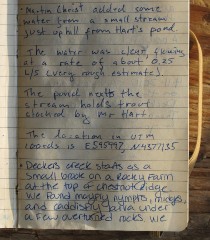 · Martin Christ added some
water from a small stream
just uphill from Hart's pond.
· The water was clear flowing
at a rate of about 0.25
L/s (very rough estimate)
The pond neath the
stream holds trout
stocked by Mr Hart.
The location in UTM
coords is E595992, N4371135
· Deckers Creek starts as a
small brook on a Rocky Farm
at the top of Chestnut Ridge
We found mayfly nymphs, midges,
and caddisfly larva under
a few overturned rocks. We